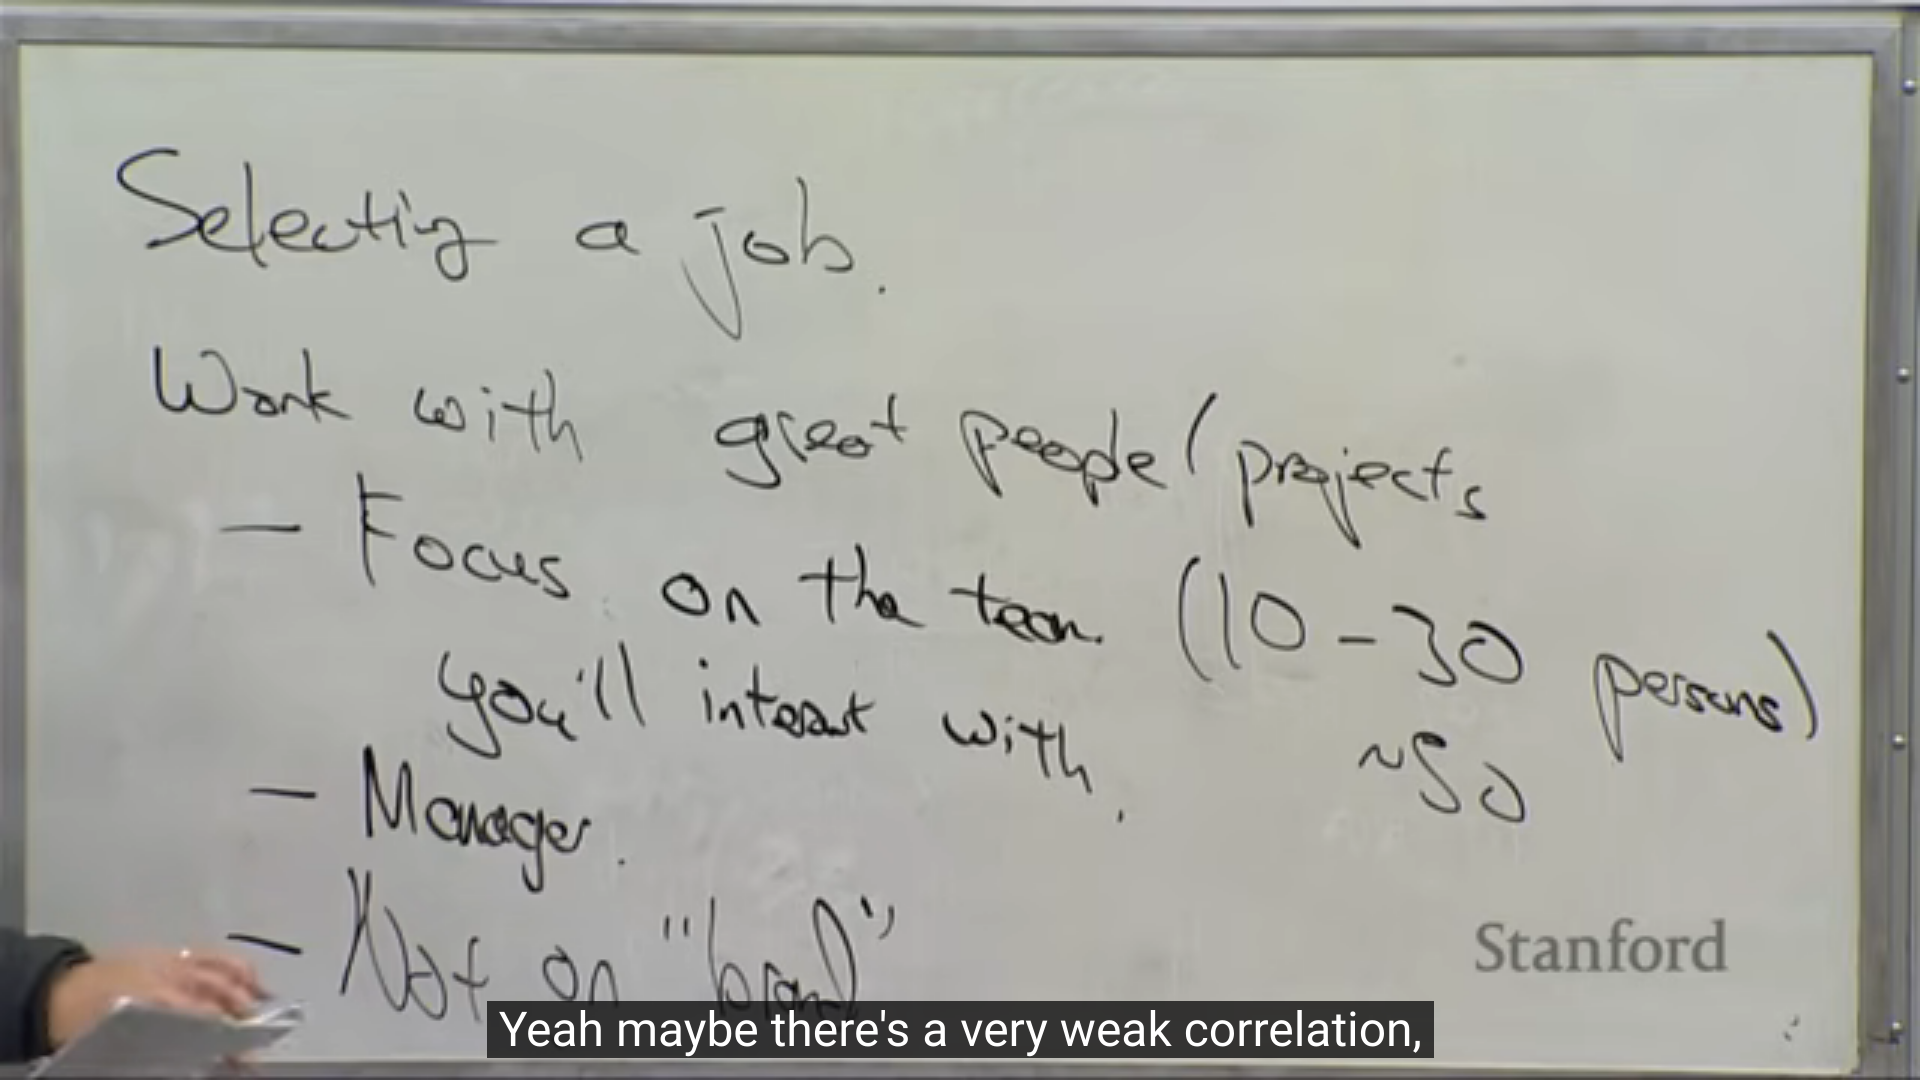 Selecting a job.
Work with great people / projects
- Focus on the team (10-30 persons)
you'll interact with. ~50
- Manager.
- Not on "brand"
Stanford
Yeah maybe there's a very weak correlation,